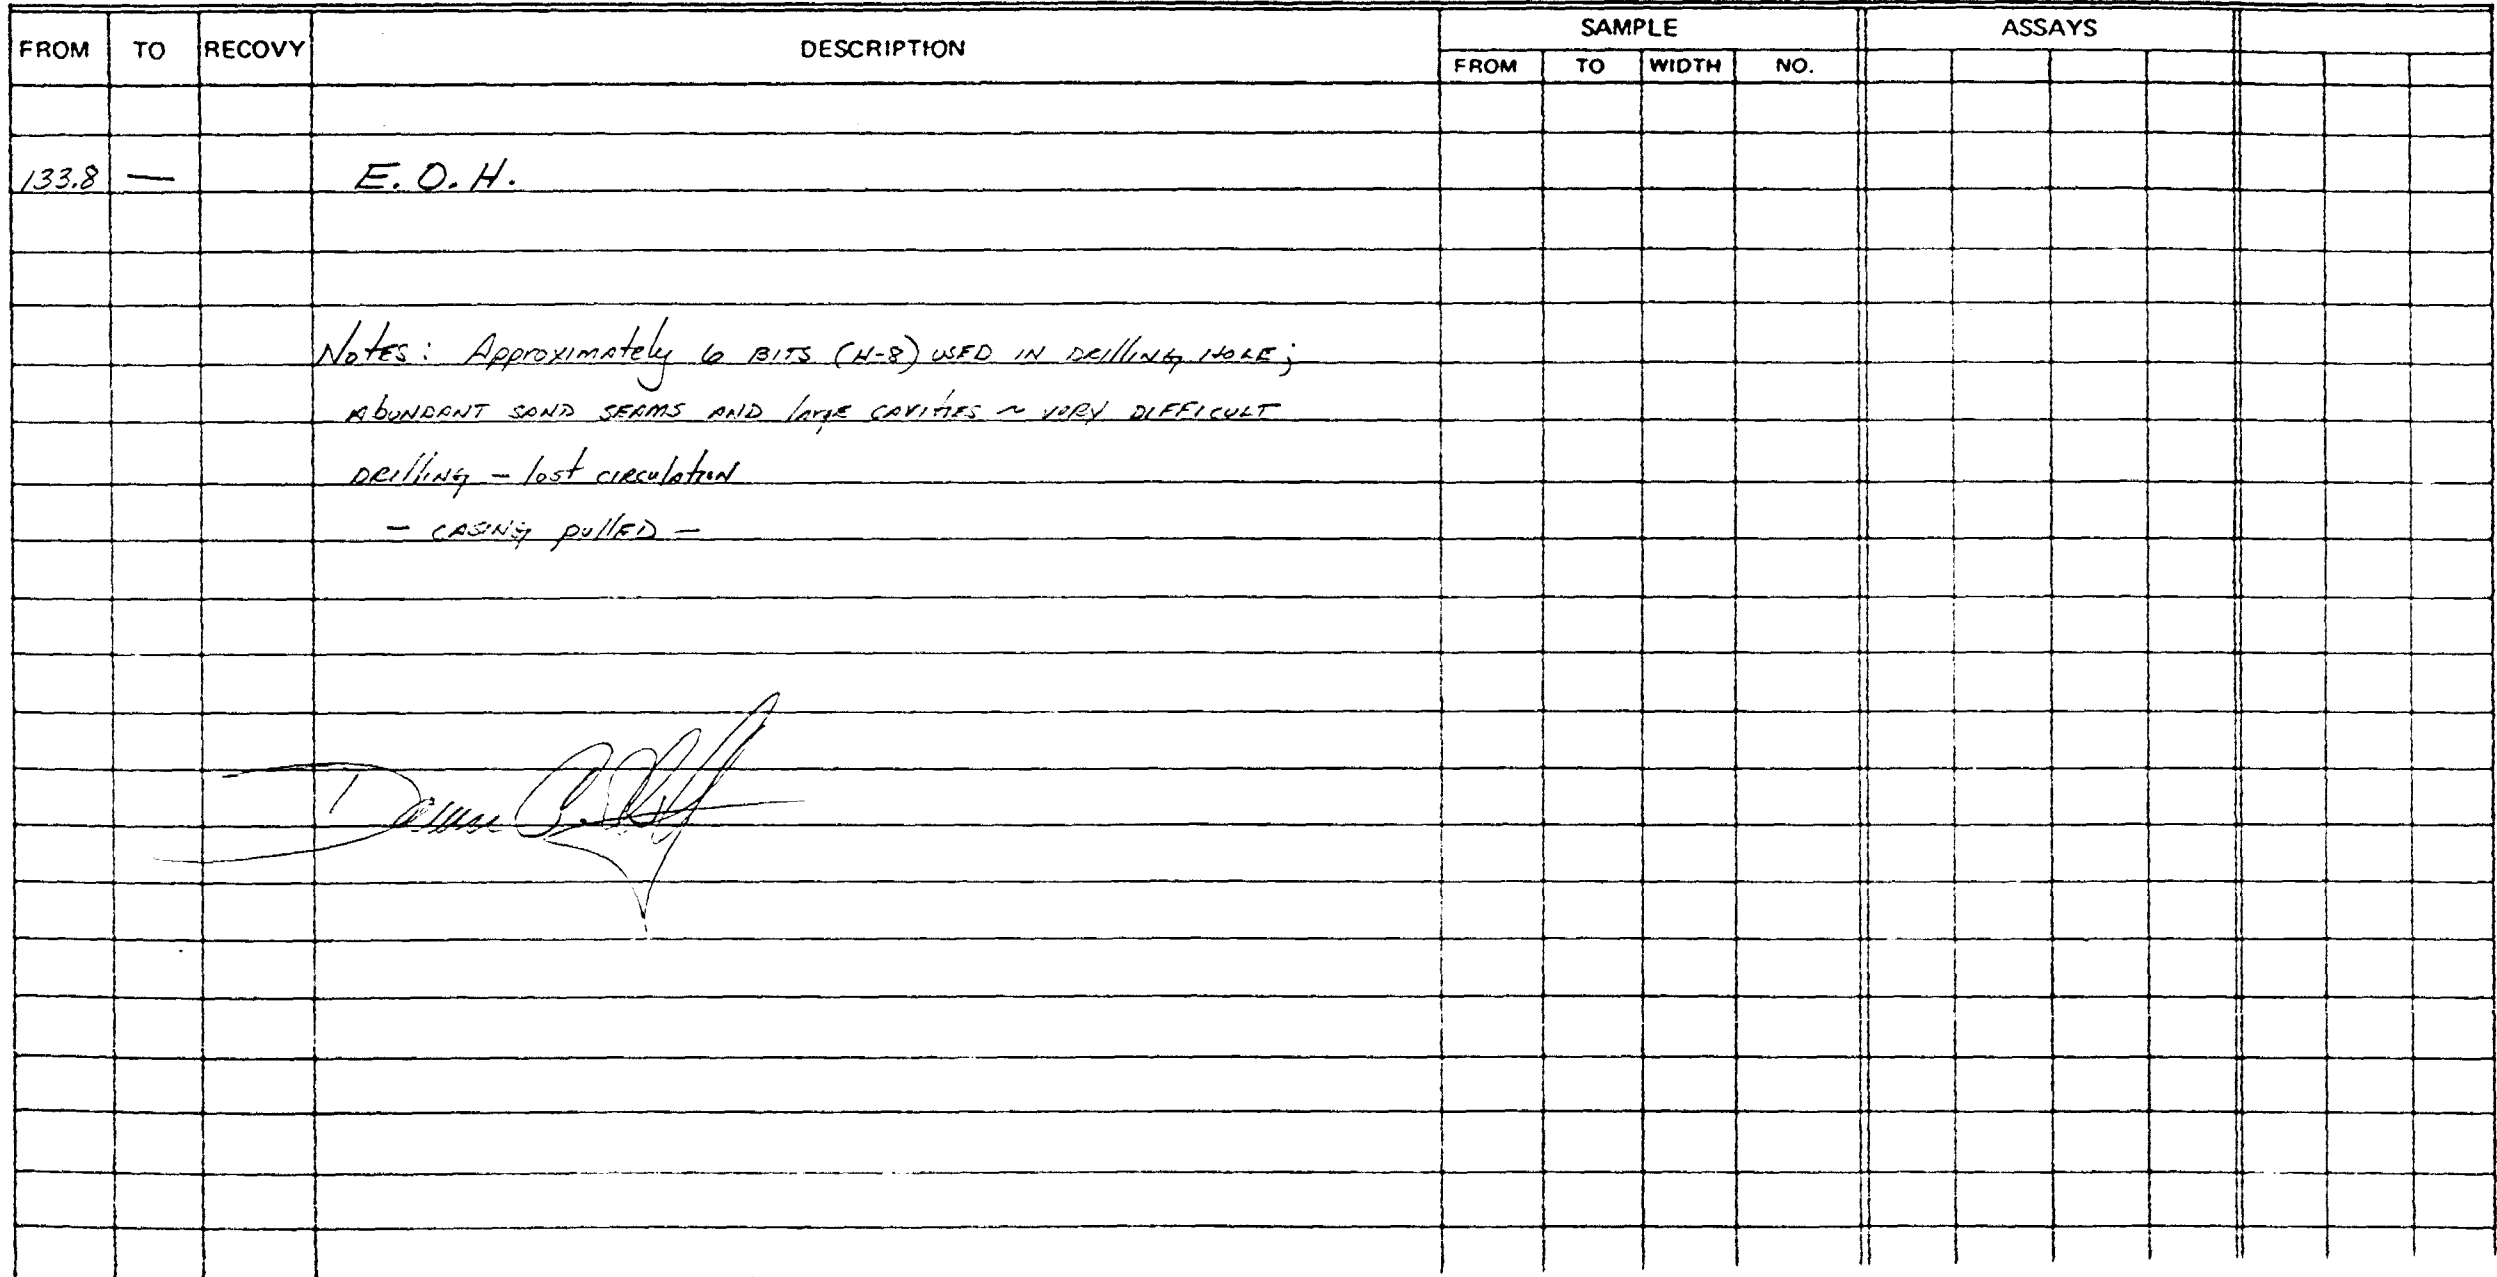 FROM TO RECOVY DESCRIPTION SAMPLE ASSAYS
FROM TO WIDTH NO.
133.8 — E.O.H.
Notes: Approximately 6 BITS (H-8) USED IN DRILLING HOLE;
ABUNDANT SAND SEAMS AND large CAVITIES ~ VERY DIFFICULT
DRILLING - lost CIRCULATION
- CASING pullED -